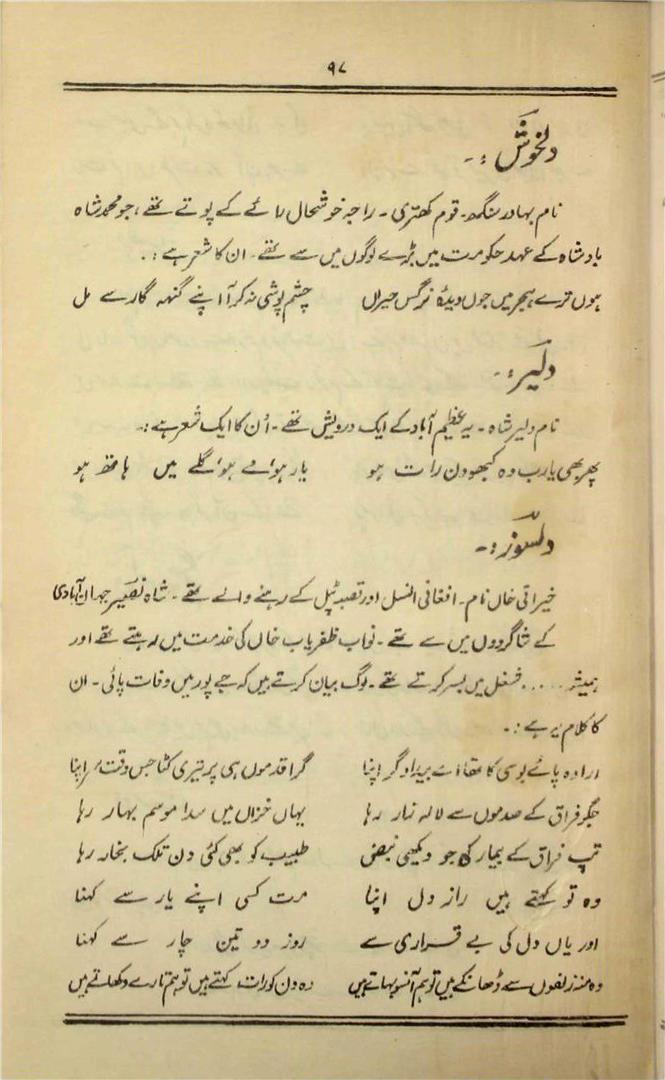 ۹۷
دلخوش :۔
نام بہادر سنگھ۔ قوم کھتری۔ راجہ خوشحال رائے کے پوتے تھے، جو محمد شاہ
بادشاہ کے عہد حکومت میں بڑے لوگوں میں سے تھے۔ ان کا شعر ہے :۔
ہوں ترے ہجر میں جوں دیدۂ نرگس حیراں چشم پوشی نہ کر آ اپنے گنہہ گار سے مل
دلیر :۔
نام دلیر شاہ۔ یہ عظیم آباد کے ایک درویش تھے۔ اُن کا ایک شعر ہے :۔
پھر بھی یارب وہ کبھو دن رات ہو یار ہوئے ہوئے گلے میں ہاتھ ہو
دلسوز :۔
خیراتی خاں نام۔ افغانی النسل اور قصبہ ٹپل کے رہنے والے تھے۔ شاہ نصیر جہاں آبادی
کے شاگردوں میں سے تھے۔ نواب ظفریاب خاں کی خدمت میں رہتے تھے اور
ہمیشہ ..... شغل میں بسر کرتے تھے۔ لوگ بیان کرتے ہیں کہ جے پور میں وفات پائی۔ ان
کا کلام یہ ہے :۔
ارادہ پائے بوسی کا تھا اے بیداد گر اپنا گرا قدموں ہی پر تیری کٹا جس وقت سر اپنا
جگر فراق کے صدموں سے لالہ زار رہا یہاں خزاں میں سدا موسم بہار رہا
تپ فراق کے بیمار کی جو دیکھی نبض طبیب کو بھی کئی دن تلک بخار رہا
وہ تو کہتے ہیں راز دل اپنا مت کسی اپنے یار سے کہنا
اور یاں دل کی بے قراری سے روز دو تین چار سے کہنا
وہ منہ زلفوں سے ڈھانکے ہیں تو ہم آنسو بہاتے ہیں وہ دن کو رات کہتے ہیں تو ہم تارے دکھاتے ہیں